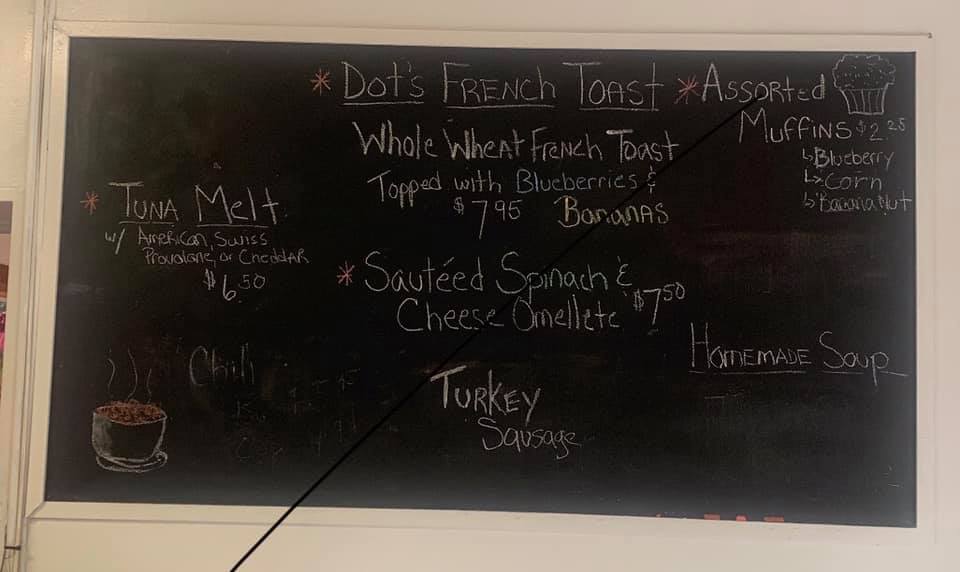 * Tuna Melt
w/ American, Swiss
Provolone, or Cheddar
$6.50
Chili
* Dot's French Toast
Whole Wheat French Toast
Topped with Blueberries &
$7.95 Bananas
* Sautéed Spinach &
Cheese Omellete $7.50
Turkey
Sausage
* Assorted
Muffins $2.25
↳ Blueberry
↳ Corn
↳ Banana Nut
Homemade Soup